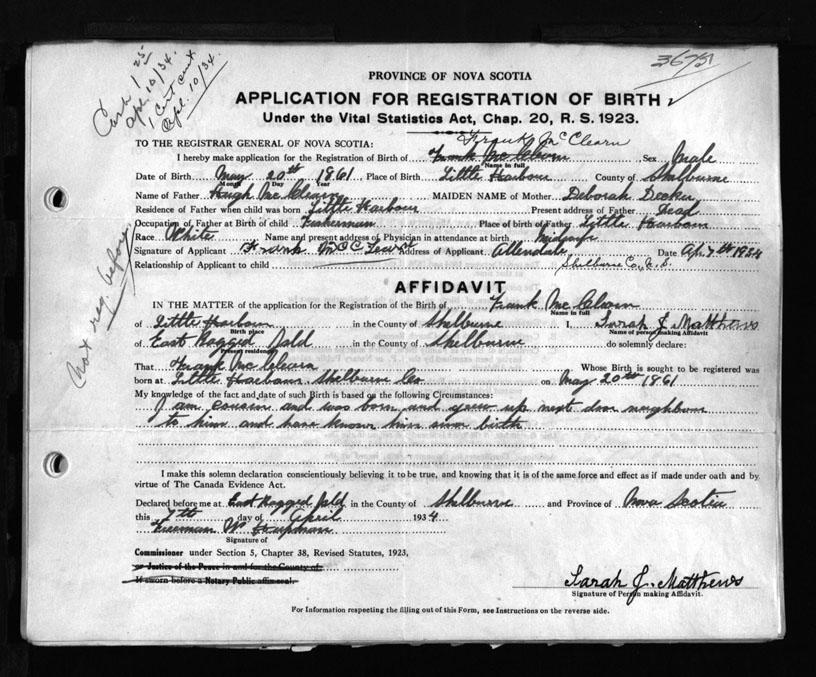 36751
Cash 1.25
Apl. 10/34.
1 Cert cut
Apl. 10/34.
PROVINCE OF NOVA SCOTIA
APPLICATION FOR REGISTRATION OF BIRTH
Under the Vital Statistics Act, Chap. 20, R. S. 1923.
TO THE REGISTRAR GENERAL OF NOVA SCOTIA:
Frank McClearn
I hereby make application for the Registration of Birth of Frank McClearn Sex Male
Name in full
Date of Birth May 20th 1861 Place of Birth Little Harbour County of Shelburne
Month Day Year
Name of Father Hugh McClearn MAIDEN NAME of Mother Deborah Decker
Residence of Father when child was born Little Harbour Present address of Father Dead
Occupation of Father at Birth of child Fisherman Place of birth of Father Little Harbour
Race White Name and present address of Physician in attendance at birth Midwife
Signature of Applicant Frank Address of Applicant Allendale Date Ap. 7th 1934
Relationship of Applicant to child Shelburne Co., N.S.
Not reg. before
AFFIDAVIT
IN THE MATTER of the application for the Registration of the Birth of Frank McClearn
Name in full
of Little Harbour in the County of Shelburne I, Sarah J. Matthews
Birth place Name of person making Affidavit
of East Ragged Isld in the County of Shelburne do solemnly declare:
Present residence
That Frank McClearn Whose Birth is sought to be registered was
born at Little Harbour Shelburne Co on May 20th 1861
My knowledge of the fact and date of such Birth is based on the following Circumstances:
I am cousin and was born and grew up next door neighbour
to him and have known him since birth
I make this solemn declaration conscientiously believing it to be true, and knowing that it is of the same force and effect as if made under oath and by
virtue of The Canada Evidence Act.
Declared before me at East Ragged Isld in the County of Shelburne and Province of Nova Scotia
this 7th day of April 1934
Freeman
Signature of
Commissioner under Section 5, Chapter 38, Revised Statutes, 1923,
or Justice of the Peace in and for the County of
If sworn before a Notary Public affix seal.
Sarah J. Matthews
Signature of Person making Affidavit.
For Information respecting the filling out of this Form, see Instructions on the reverse side.